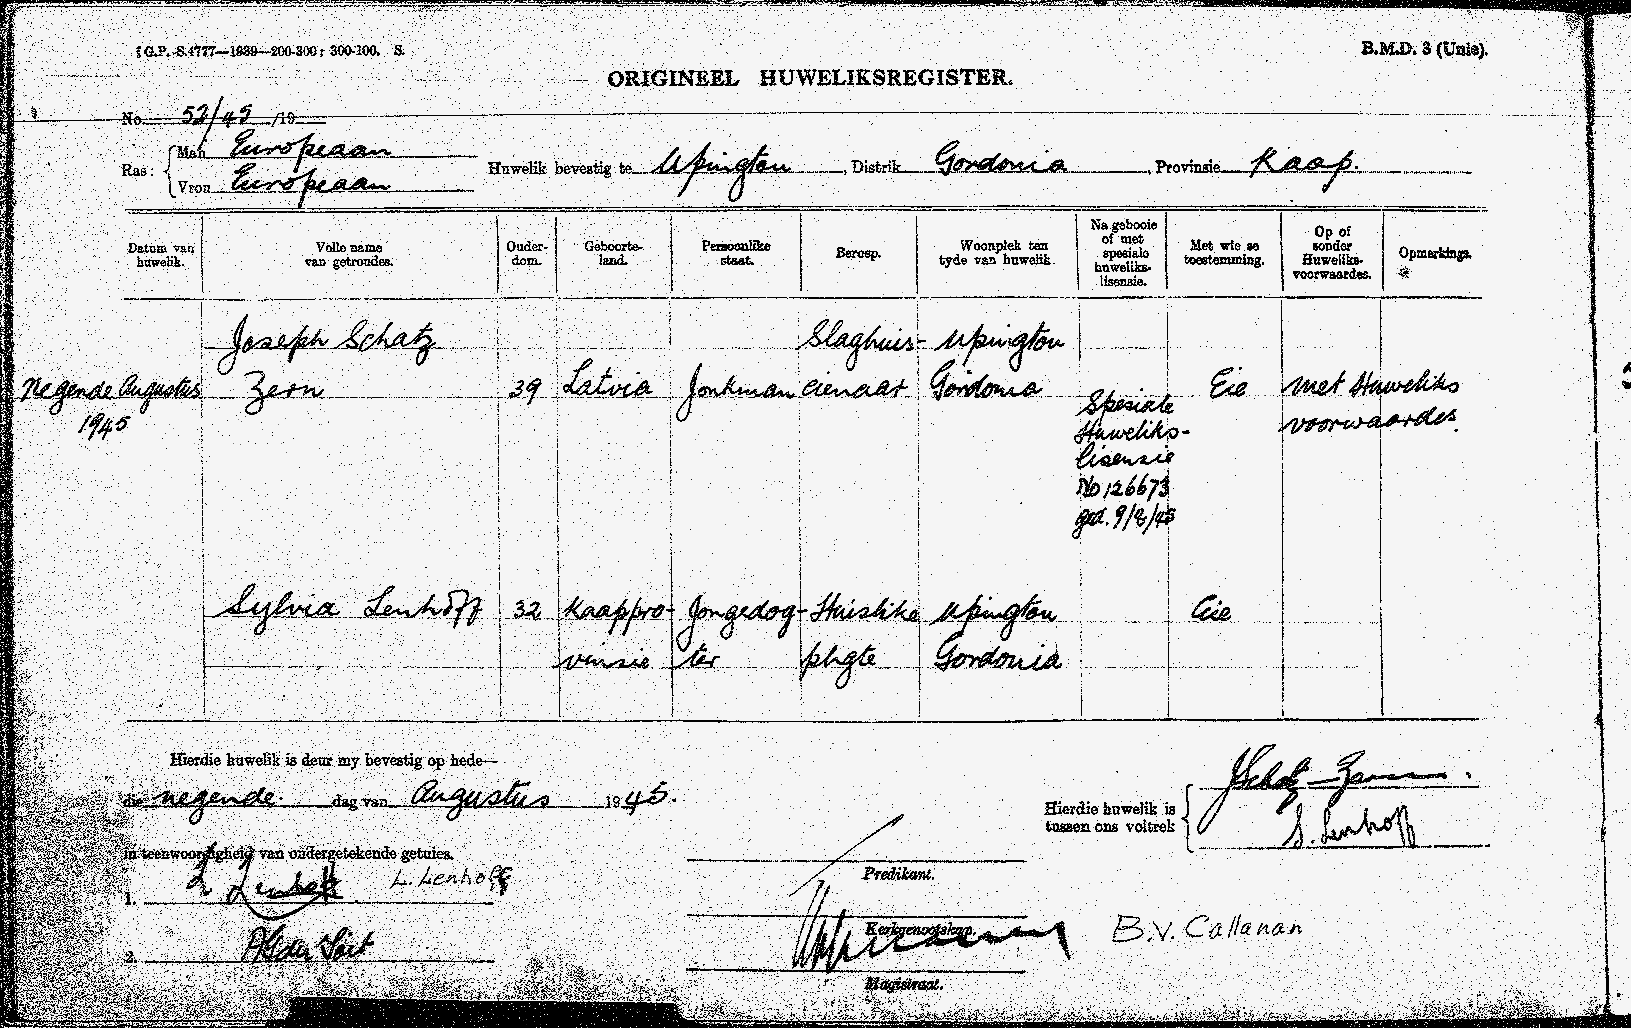 (G.P.-S.4777—1939—200-300: 300-100. S.
B.M.D. 3 (Unie).
ORIGINEEL HUWELIKSREGISTER.
No. 52/45 /19
Ras: Man Europeaan
Vrou Europeaan
Huwelik bevestig te Upington, Distrik Gordonia, Provinsie Kaap.
Datum van huwelik.
Volle name van getroudes.
Ouderdom.
Geboorteland.
Persoonlike staat.
Beroep.
Woonplek ten tyde van huwelik.
Na gebooie of met spesiale huwelikslisensie.
Met wie se toestemming.
Op of sonder Huweliksvoorwaardes.
Opmerkings.
*
Joseph Schatz Slaghuis- Upington
Negende Augustus Zern 39 Latvia Jonkman eienaar Gordonia Eie met Huweliks
1945 Spesiale voorwaardes.
Huweliks-
lisensie
No 126673
ged. 9/8/45
Sylvia Lenhoff 32 Kaappro- Jongedog- Huislike Upington Eie
vinsie ter pligte Gordonia
Hierdie huwelik is deur my bevestig op hede—
die negende dag van Augustus 1945.
Hierdie huwelik is tussen ons voltrek
S. Lenhoff
In teenwoordigheid van ondergetekende getuies.
1. L. Lenhoff L. Lenhoff
2.
Predikant.
Kerkgenootskap.
B.V. Callanan
Magistraat.